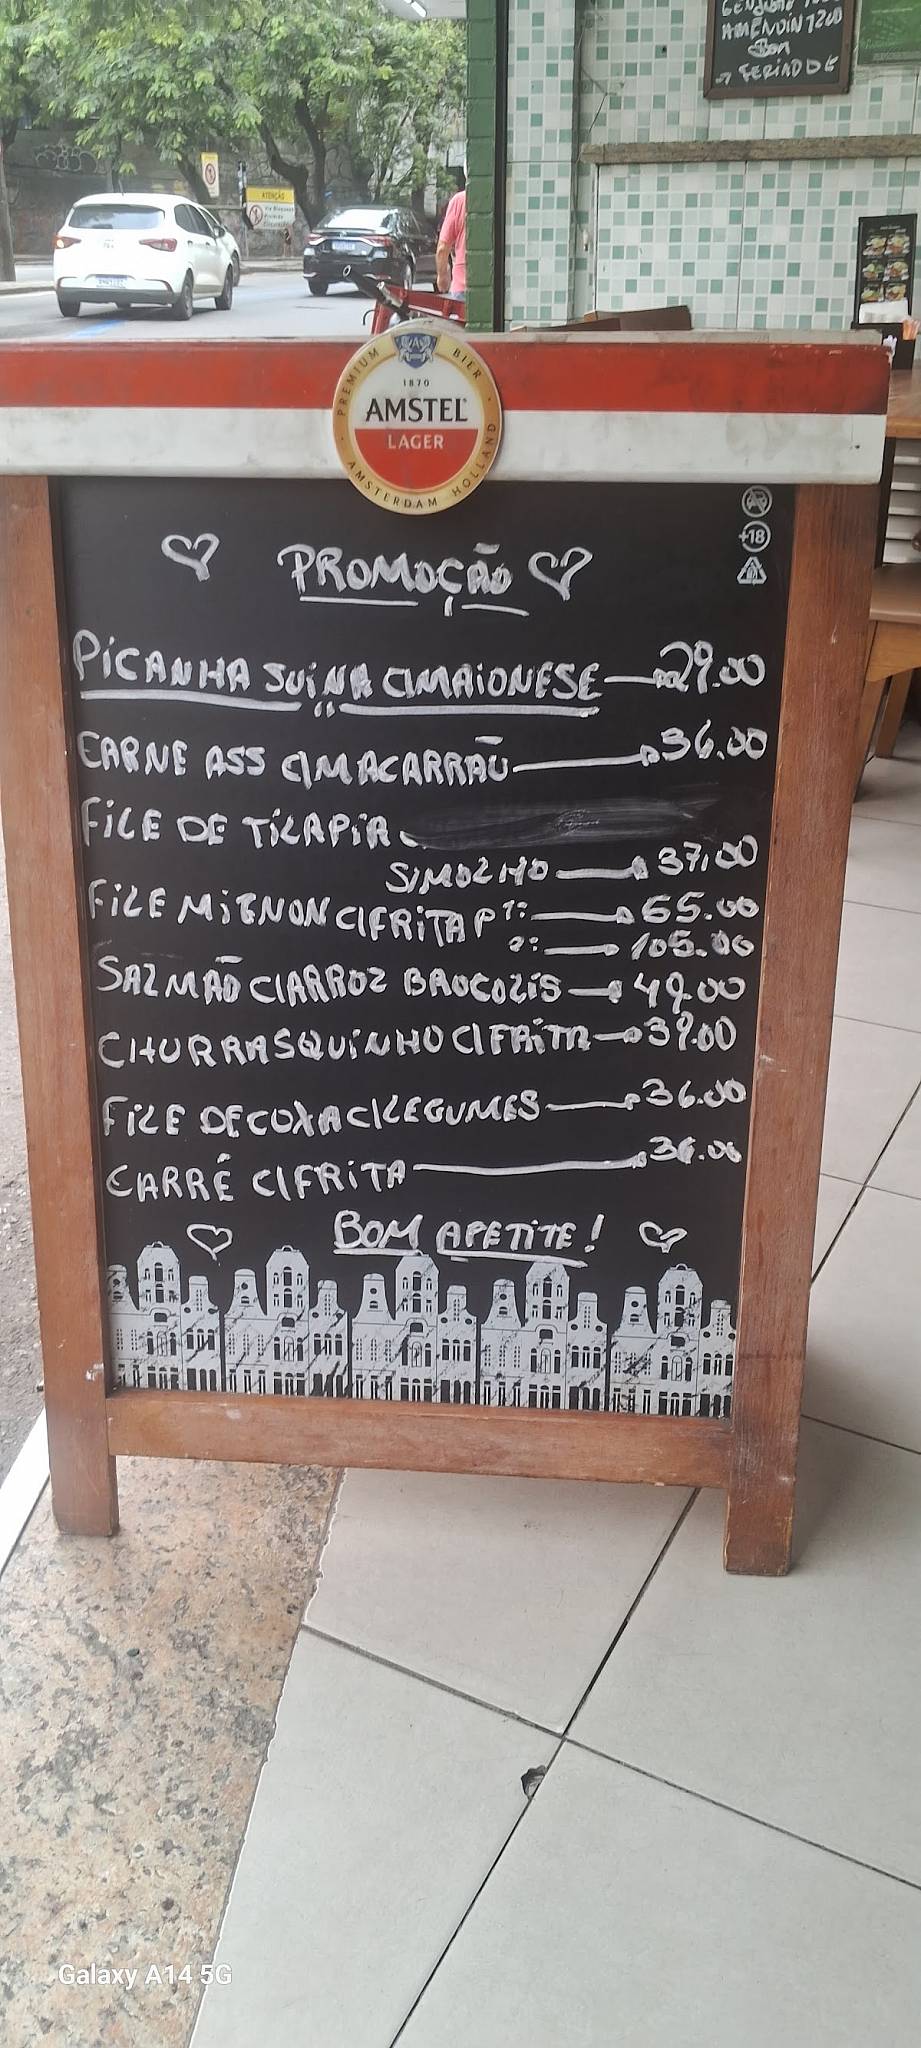 AMENDOIN 1200
Bom
→ FERIADO DE
ATENÇÃO
PREMIUM BIER
1870
AMSTEL
LAGER
AMSTERDAM HOLLAND
+18
PROMOÇÃO
PICANHA SUÍNA C/MAIONESE 29.00
CARNE ASS C/MACARRÃO 36.00
FILE DE TILAPIA
S/MOLHO 37,00
FILE MIGNON C/FRITA P 1: 65.00
2: 105.00
SALMÃO C/ARROZ BROCOLIS 49.00
CHURRASQUINHO C/FRITA 39.00
FILE DE COXA C/LEGUMES 36.00
CARRÉ C/FRITA 36.00
BOM APETITE!
Galaxy A14 5G